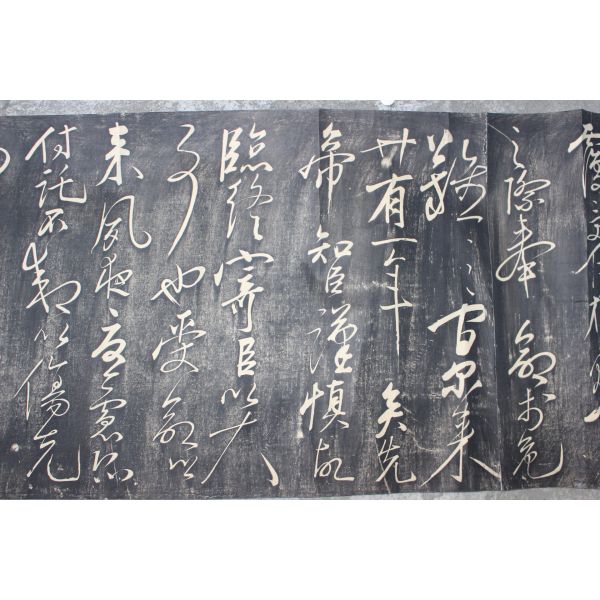 覆受任於敗
之際奉命於危
難之間爾來
廿有一年矣先
帝智臣謹慎故
臨終寄臣以大
事也受命以
來夙夜憂慮恐
付託不効以傷先